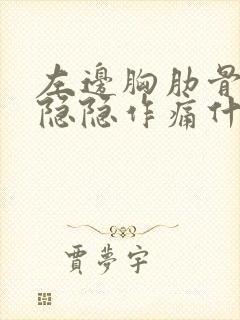 左邊胸肋骨
隐隐作痛什
賈夢宇